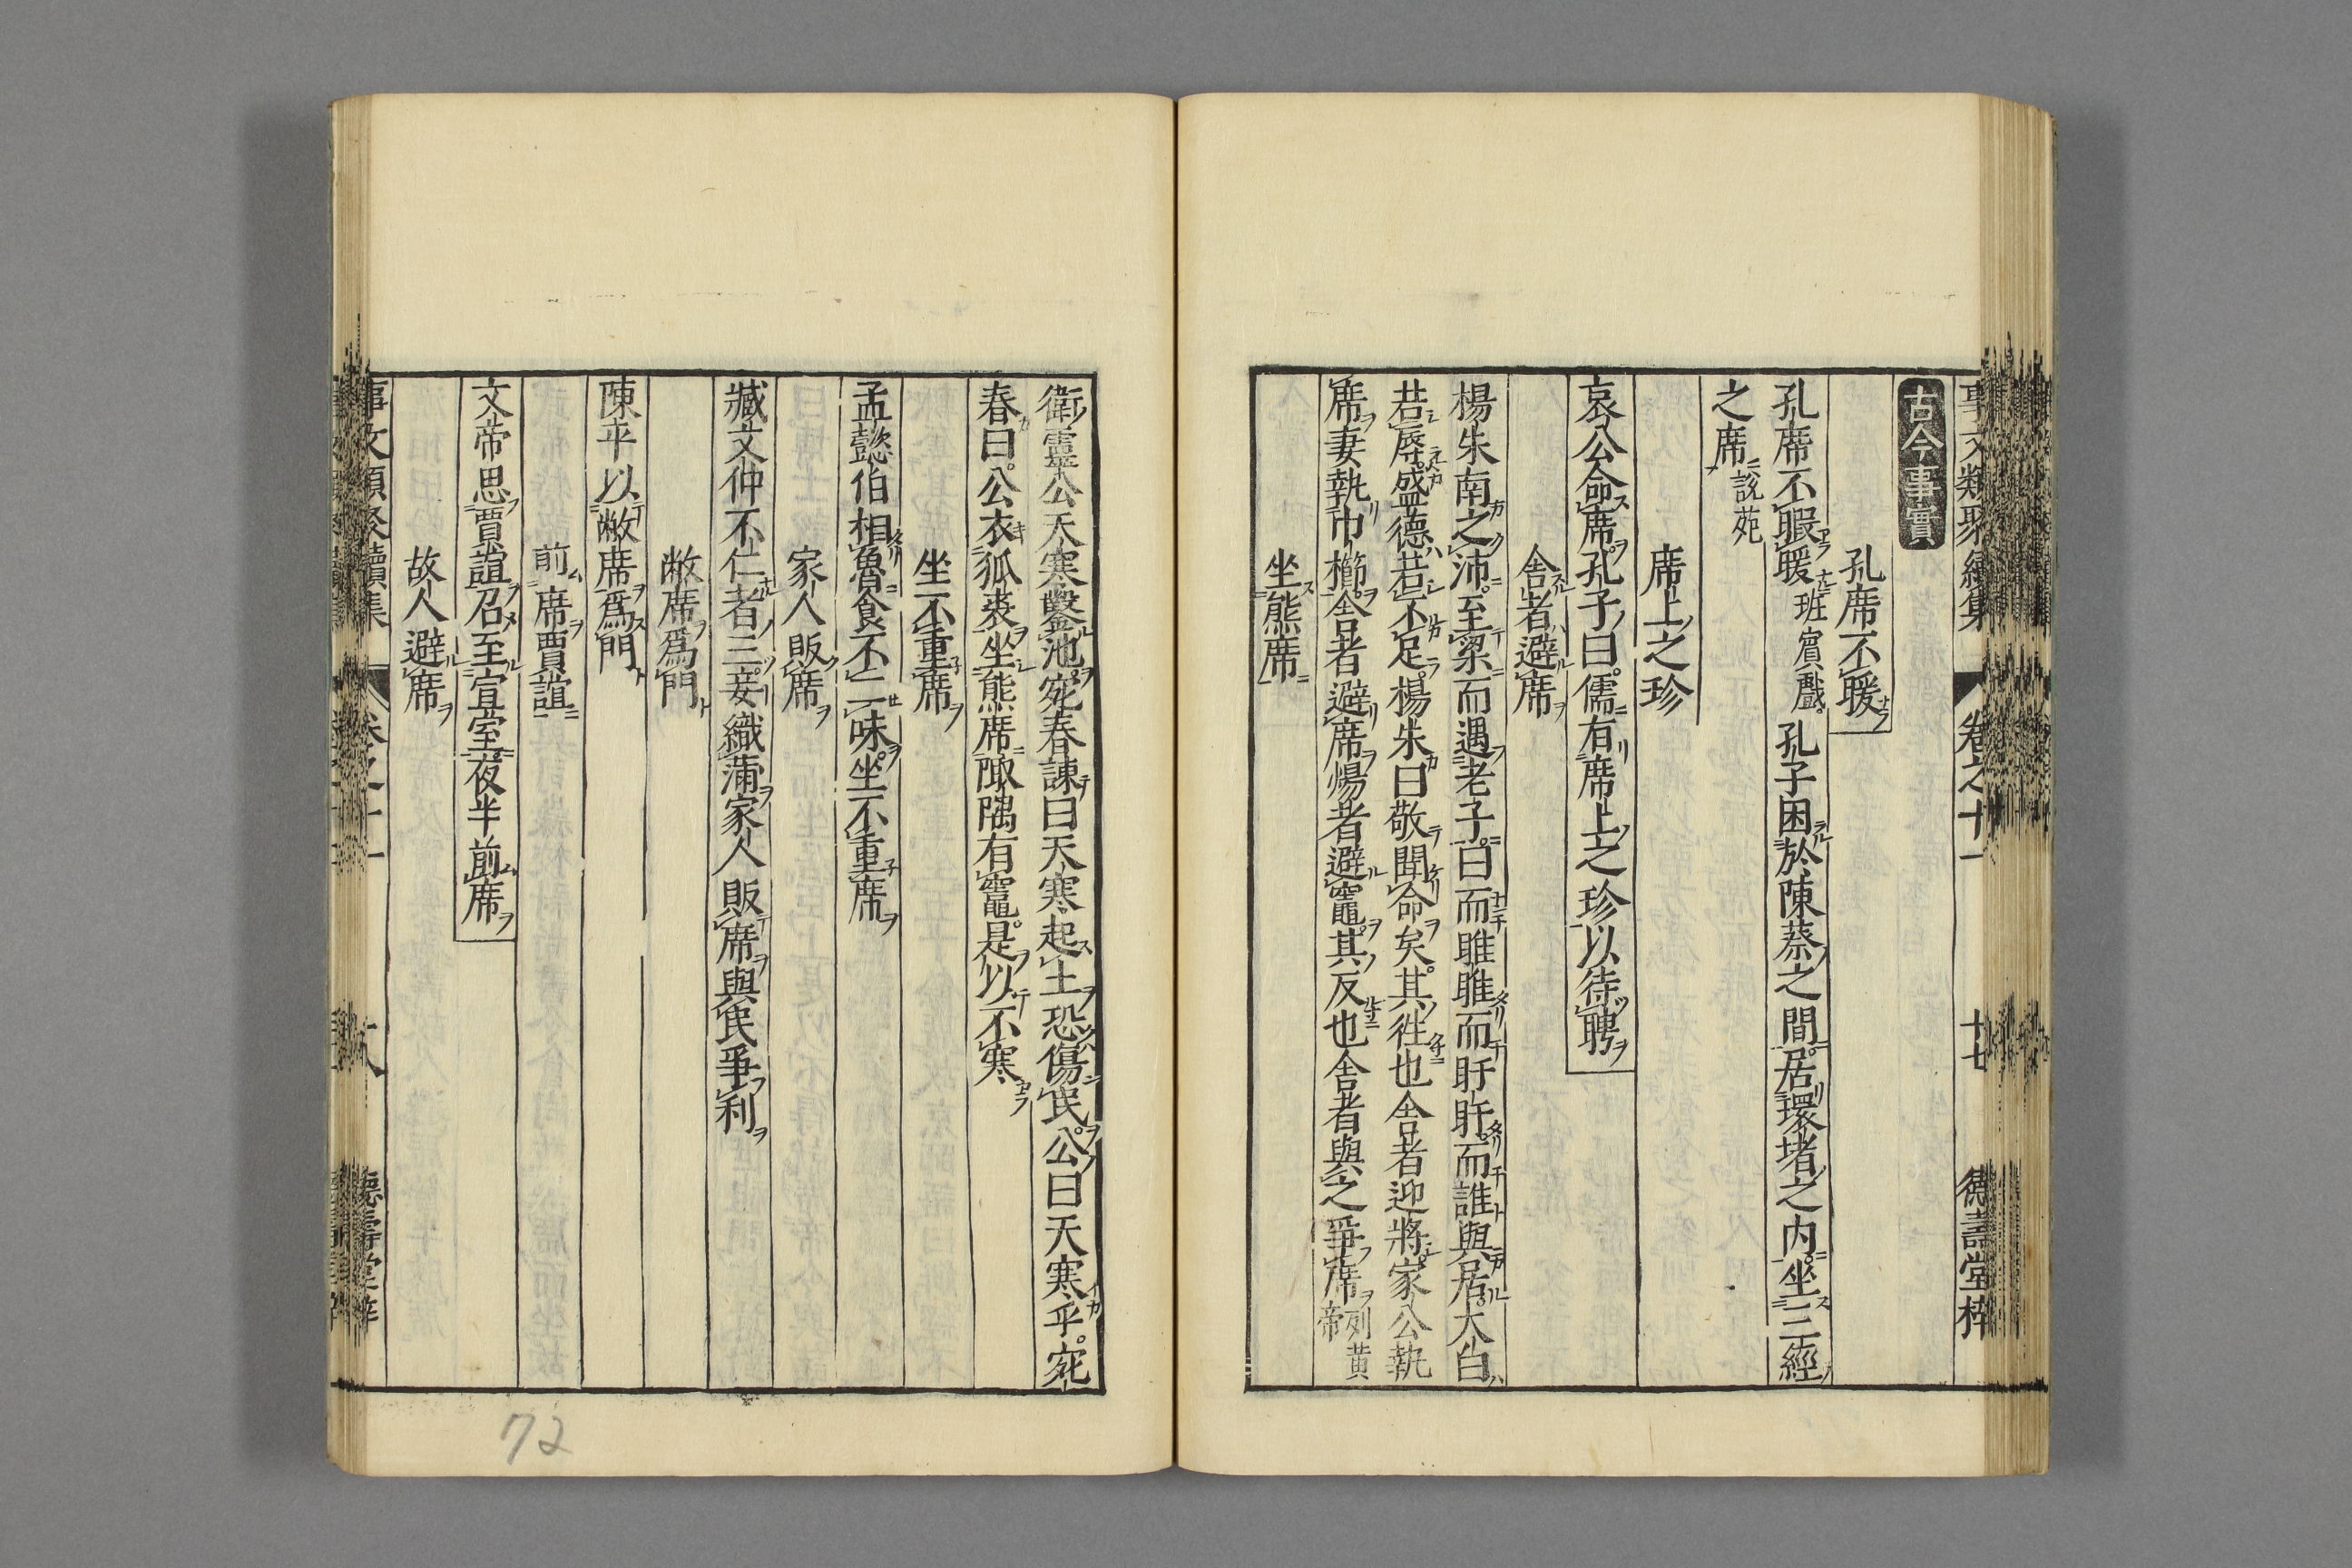 事文類聚續集 卷之十一 廿七 德壽堂梓
古今事實
孔席不暖
孔席不暇暖班賓戲。孔子困於陳蔡之間。居環堵之内。坐三經
之席說苑
席上之珍
哀公命席。孔子曰。儒有席上之珍以待聘
舍者避席
楊朱南之沛。至梁而遇老子。曰而睢睢而盱盱。而誰與居。大白
若辱。盛德若不足。楊朱曰敬聞命矣。其徃也舍者迎將。家公執
席。妻執巾櫛。舍者避席煬者避竈。其反也舍者與之爭席列黄
帝
坐熊席
衛靈公天寒鑿池。宛春諫曰天寒起土恐傷民。公曰天寒乎。宛
春曰。公衣狐裘坐熊席陬隅有竈。是以不寒
坐不重席
孟懿伯相魯食不二味。坐不重席
家人販席
臧文仲不仁者三。妾織蒲家人販席與民爭利
敝席爲門
陳平以敝席爲門
前席賈誼
文帝思賈誼召至宣室夜半前席
故人避席
事文類聚續集 卷之十一 廿八 德壽堂梓
72